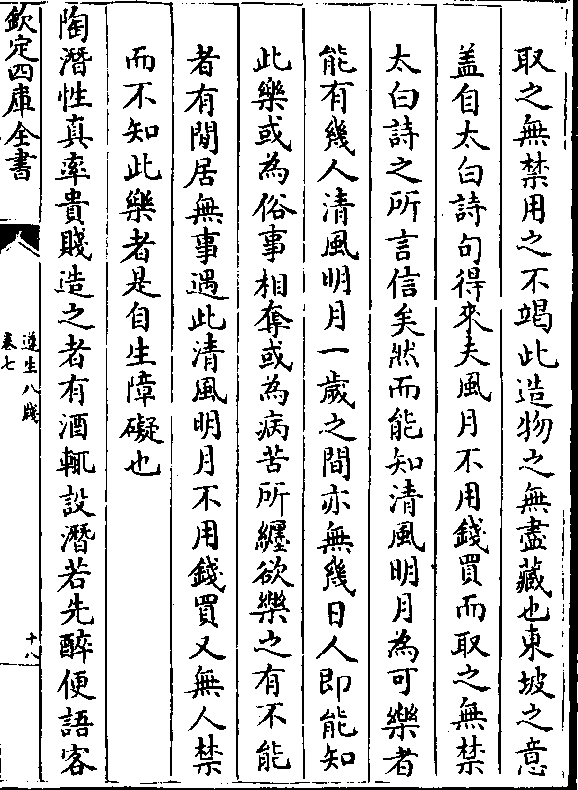 取之無禁用之不竭此造物之無盡藏也東坡之意
盖自太白詩句得來夫風月不用錢買而取之無禁
太白詩之所言信矣然而能知清風明月為可樂者
能有幾人清風明月一歲之間亦無幾日人即能知
此樂或為俗事相奪或為病苦所纒欲樂之有不能
者有閒居無事遇此清風明月不用錢買又無人禁
而不知此樂者是自生障礙也
陶潛性真率貴賤造之者有酒輒設潛若先醉便語客
欽定四庫全書
遵生八牋
卷七
十八